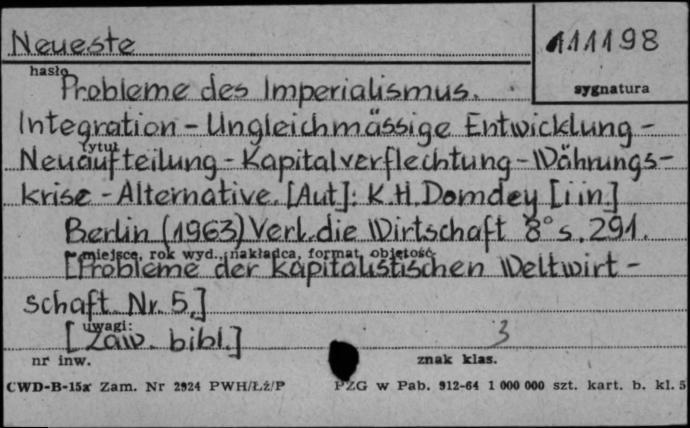 Neueste
111198
hasło
sygnatura
Probleme des Imperialismus.
Integration - Ungleichmässige Entwicklung -
tytuł
Neuaufteilung - Kapitalverflechtung - Währungs-
krise - Alternative. [Aut]: K.H. Domdey [i in.]
Berlin (1963) Verl. die Wirtschaft 8° s. 291.
miejsce, rok wyd., nakładca, format, objętość
[Probleme der kapitalistischen Weltwirt-
schaft. Nr. 5.]
uwagi:
[Zaw. bibl.]
3
nr inw.
znak klas.
CWD-B-15a Zam. Nr 2924 PWH/Łź/P
PZG w Pab. 912-64 1 000 000 szt. kart. b. kl. 5